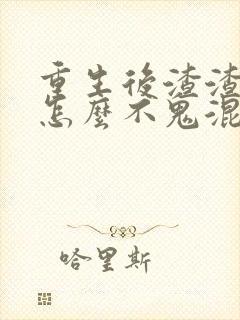 重生後渣渣
怎麼不鬼混
哈里斯